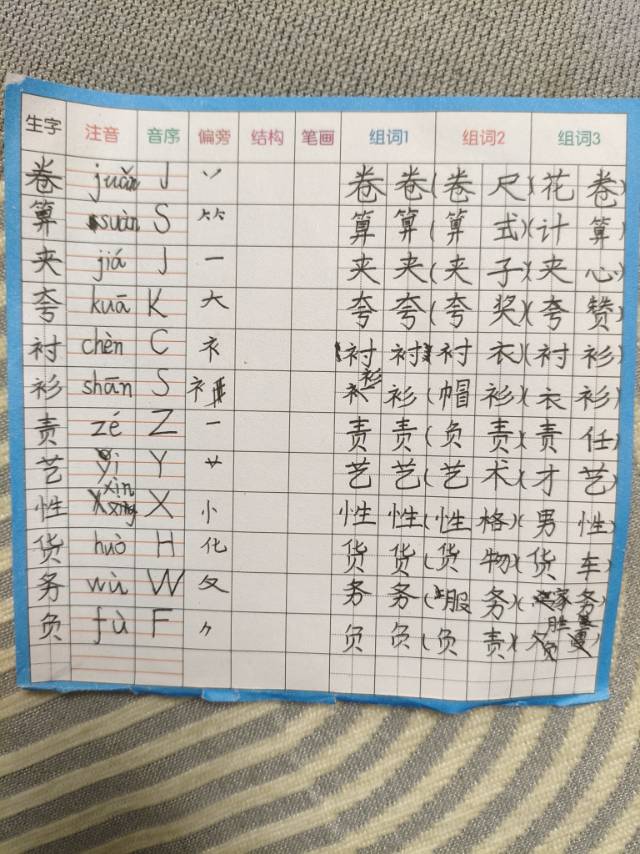 生字 注音 音序 偏旁 结构 笔画 组词1 组词2 组词3
卷 juǎn J 丷 卷 卷 (卷 尺)(花 卷)
算 suàn S ⺮ 算 算 (算 式)(计 算)
夹 jiá J 一 夹 夹 (夹 子)(夹 心)
夸 kuā K 大 夸 夸 (夸 奖)(夸 赞)
衬 chèn C 衤 衬 衬 衬 衣(衬 衫)
衫 shān S 衤 衫 衫 (帽 衫)(衣 衫)
责 zé Z 一 责 责 (负 责)(责 任)
艺 yì Y 艹 艺 艺 (艺 术)(才 艺)
性 xìng X 忄 性 性 (性 格)(男 性)
货 huò H 化 货 货 (货 物)(货 车)
务 wù W 夂 务 务 (服 务)(家 务)
负 fù F ⺈ 负 负 (负 责)(胜 负)